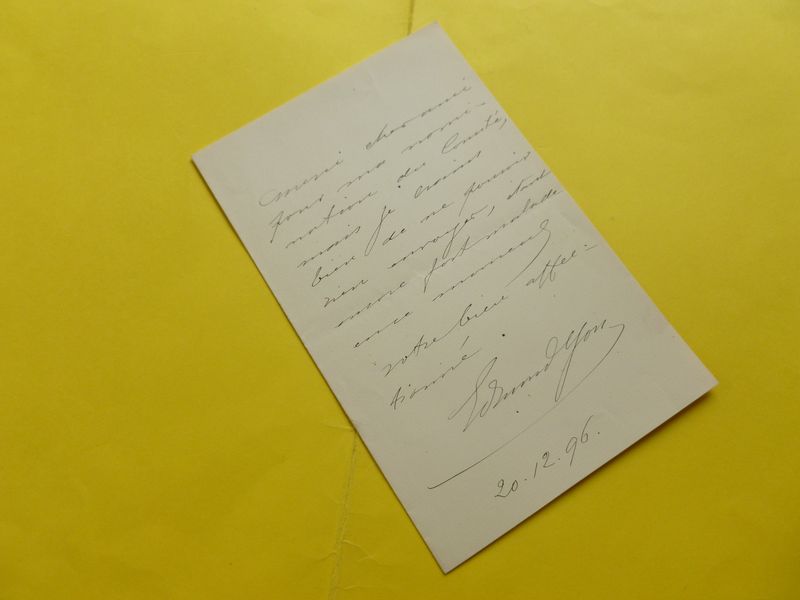 Merci cher ami
pour ma nomi-
nation du Comité,
mais je crains
bien de ne pouvoir
rien envoyer, étant
encore fort malade
en ce moment
votre bien affec-
tionné
Edmond Yon
20.12.96.